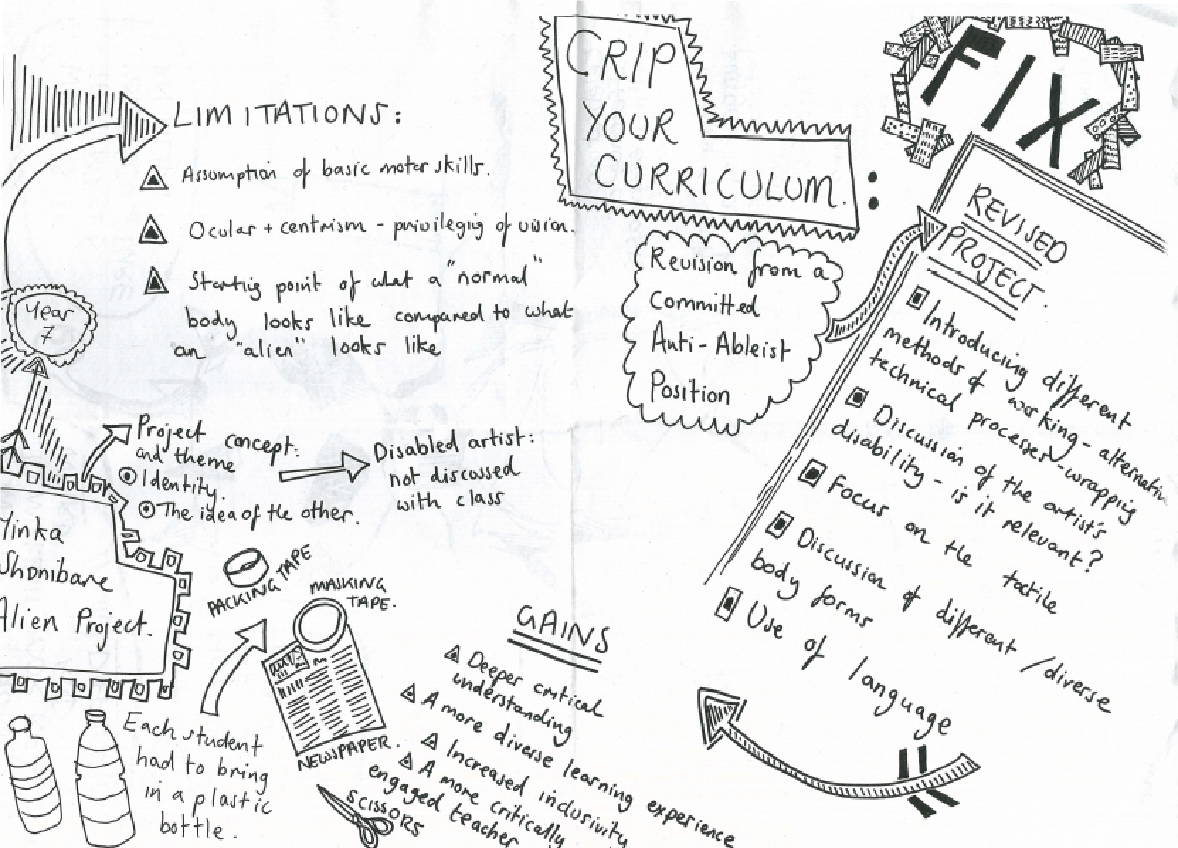 CRIP
YOUR
CURRICULUM.
:
FIX
LIMITATIONS:
Assumption of basic motor skills.
Ocular + centrism - privileging of vision.
Starting point of what a "normal"
body looks like compared to what
an "alien" looks like
Year
7
Project concept:
and theme
Identity.
The idea of the other.
Disabled artist:
not discussed
with class
Yinka
Shonibare
Alien Project.
PACKING TAPE
MASKING
TAPE.
NEWSPAPER.
SCISSORS
Each student
had to bring
in a plastic
bottle.
Revision from a
Committed
Anti-Ableist
Position
REVISED
PROJECT.
Introducing different
methods of working - alternative
technical processes - wrapping
Discussion of the artist's
disability - is it relevant?
Focus on the tactile
Discussion of different / diverse
body forms
Use of language
GAINS
Deeper critical
understanding
A more diverse learning experience
Increased inclusivity
A more critically
engaged teacher